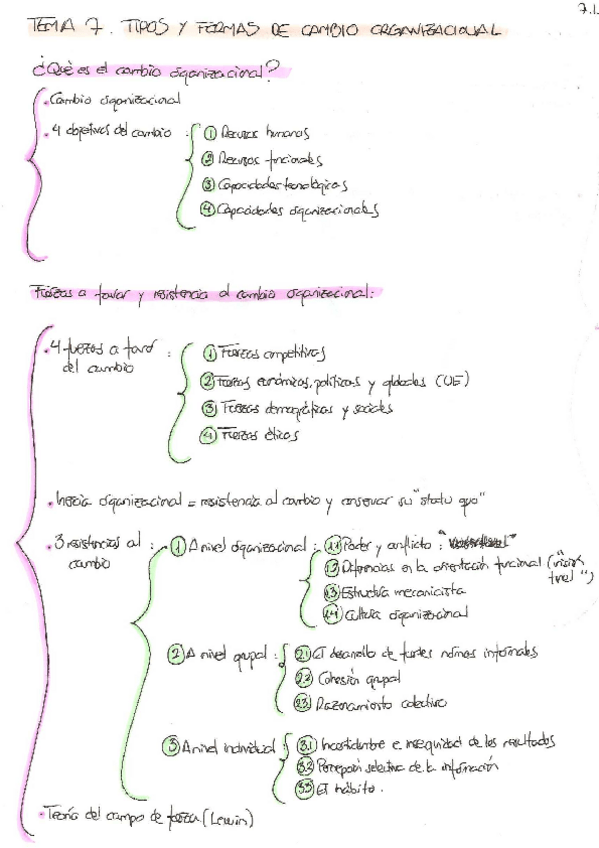 7.1.
TEMA 7. TIPOS Y FORMAS DE CAMBIO ORGANIZACIONAL
¿Qué es el cambio organizacional?
• Cambio organizacional
• 4 objetivos del cambio :
① Recursos humanos
② Recursos funcionales
③ Capacidades tecnológicas
④ Capacidades organizacionales
Fuerzas a favor y resistencia al cambio organizacional:
• 4 fuerzas a favor del cambio :
① Fuerzas competitivas
② Fuerzas económicas, políticas y globales (UE)
③ Fuerzas demográficas y sociales
④ Fuerzas éticas
• Inercia organizacional = resistencia al cambio y conservar su "statu quo"
• 3 resistencias al cambio :
① A nivel organizacional :
1.1 Poder y conflicto :
1.2 Diferencias en la orientación funcional ("visión
1.3 Estructura mecanicista
1.4 Cultura organizacional
② A nivel grupal :
2.1 El desarrollo de fuertes normas informales
2.2 Cohesión grupal
2.3 Razonamiento colectivo
③ A nivel individual
3.1 Incertidumbre e inseguridad de los resultados
3.2 Percepción selectiva de la información
3.3 El hábito.
• Teoría del campo de fuerza (Lewin)